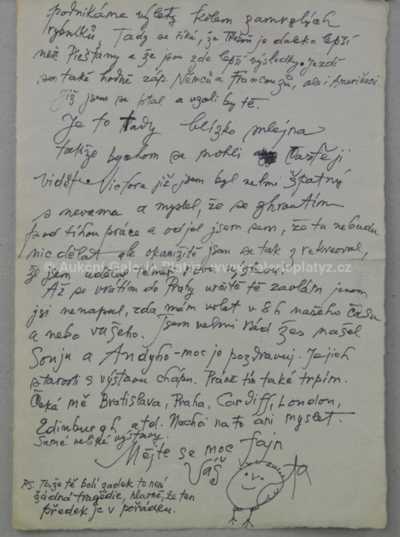 podnikáme výlety kolem zamrzlých
rybníků. Tady se říká, že Třeboň je daleko lepší
než Piešťany a že jsou zde lepší výsledky. jezdí
sem také hodně záp. Němců a Francouzů, ale i Američani
Již jsem se ptal a vzali by tě.
Je to tady blízko mlejna
takže bychom se mohli častěji
vidět. Včera již jsem byl velmi špatný
s nervama a myslel, že se zhroutím
pod tíhou práce a odjel jsem sem, že tu nebudu
nic dělat, ale okamžitě jsem se tak zrekreoval,
že jsem udělal nové
Až se vrátím do Prahy určitě tě zavolám jenom
jsi nenapsal, zda mám volat v 8h našeho času
a nebo vašeho. Jsem velmi rád žes našel
Sonju a Andyho - moc je pozdravuj. Jejich
starosti s výstavou chápu. Právě tím také trpím.
Čeká mě Bratislava, Praha, Cardiff, London,
Edinburgh atd. Nechci na to ani myslet.
Samé velké výstavy.
Mějte se moc fajn
Váš
PS. To že tě bolí zadek to není
žádná tragédie, hlavně, že ten
předek je v pořádku.